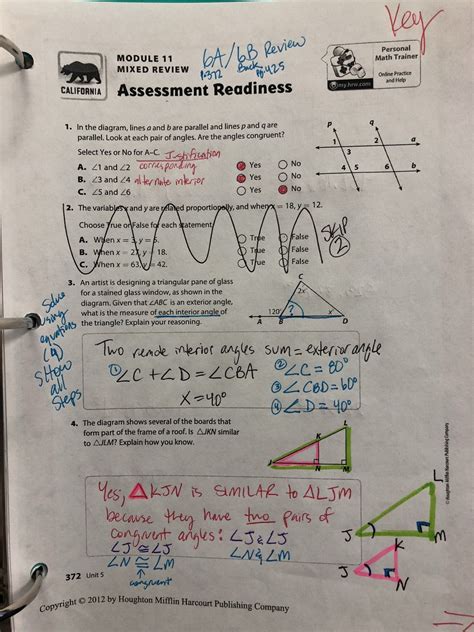 Key
MODULE 11
MIXED REVIEW
6A/6B Review
P.372 Back pg 425
Personal
Math Trainer
Online Practice
and Help
my.hrw.com
CALIFORNIA
Assessment Readiness
1. In the diagram, lines a and b are parallel and lines p and q are
parallel. Look at each pair of angles. Are the angles congruent?
Select Yes or No for A–C. Justification
A. ∠1 and ∠2 corresponding Yes No
B. ∠3 and ∠4 alternate interior Yes No
C. ∠5 and ∠6 Yes No
p q
1 2 a
3
4 5 6 b
2. The variables x and y are related proportionally, and when x = 18, y = 12.
Choose True or False for each statement.
A. When x = 3, y = 6. True False
B. When x = 27, y = 18. True False
C. When x = 63, y = 42. True False
SKIP
2
3. An artist is designing a triangular pane of glass
for a stained glass window, as shown in the
diagram. Given that ∠ABC is an exterior angle,
what is the measure of each interior angle of
the triangle? Explain your reasoning.
C
2x
120° ? x
A B D
Solve
using
equations
(4)
Show
all
steps
Two remote interior angles sum = exterior angle
① ∠C + ∠D = ∠CBA
x = 40°
② ∠C = 80°
③ ∠CBD = 60°
④ ∠D = 40°
4. The diagram shows several of the boards that
form part of the frame of a roof. Is △JKN similar
to △JLM? Explain how you know.
L
K
J N M
Yes, △KJN is SIMILAR to △LJM
because they have two pairs of
congruent angles: ∠J & ∠J
∠J ≅ ∠J ∠N & ∠M
∠N ≅ ∠M
congruent
L
J M
K
J N
© Houghton Mifflin Harcourt Publishing Company
372 Unit 5
Copyright © 2012 by Houghton Mifflin Harcourt Publishing Company